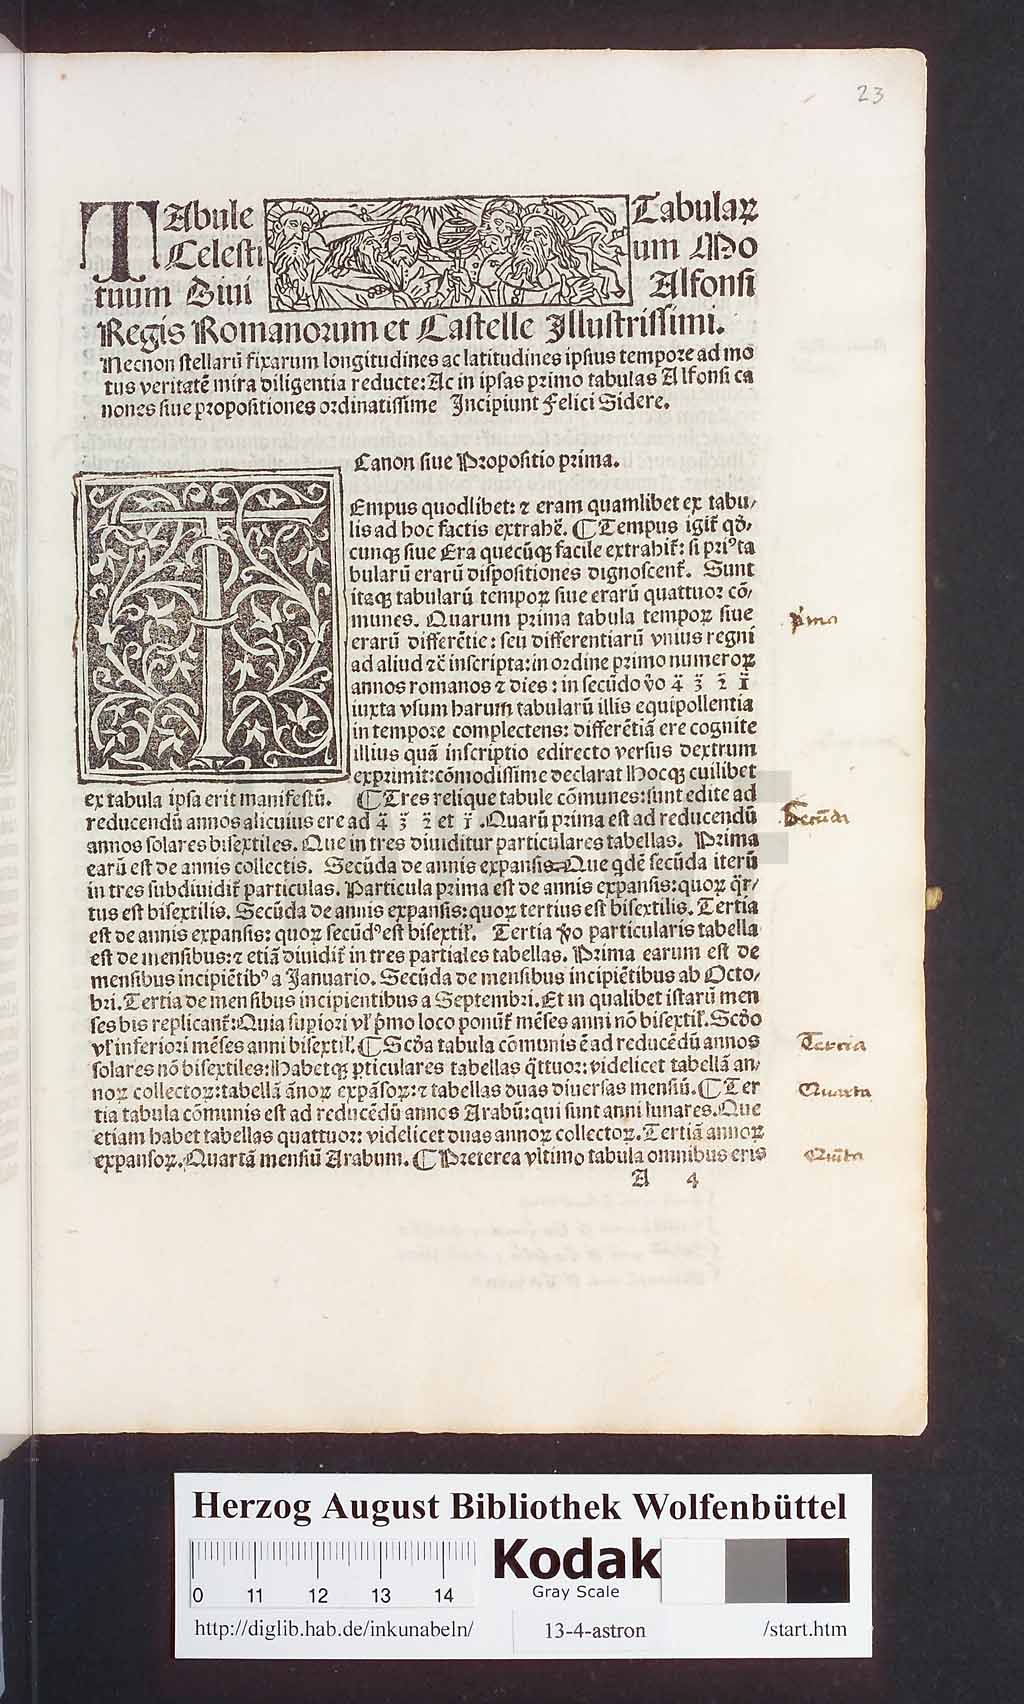 23
TAbule Tabulaꝝ
Celesti um Mo
tuum Diui Alfonsi
Regis Romanorum et Castelle Illustrissimi.
Necnon stellarū fixarum longitudines ac latitudines ipsius tempore ad mo
tus veritatē mira diligentia reducte: Ac in ipsas primo tabulas Alfonsi ca
nones siue propositiones ordinatissime Incipiunt Felici Sidere.
Canon siue Propositio prima.
TEmpus quodlibet: ⁊ eram quamlibet ex tabu/
lis ad hoc factis extrahē. ¶ Tempus igit̄ qd̄/
cunqꝫ siue Era quecūqꝫ facile extrahit̄: si priꝰ ta
bularū erarū dispositiones dignoscent̄. Sunt
itaqꝫ tabularū tempoꝝ siue erarū quattuor cō/
munes. Quarum prima tabula tempoꝝ siue
erarū differētie: seu differentiarū vnius regni
ad aliud ⁊c̄ inscripta: in ordine primo numeroꝝ
annos romanos ⁊ dies: in secūdo v̊o 4̄ 3̄ 2̄ 1̄
iuxta vsum harum tabularū illis equipollentia
in tempore complectens: differētiā ere cognite
illius quā inscriptio edirecto versus dextrum
exprimit: cōmodissime declarat Hocqꝫ cuilibet
ex tabula ipsa erit manifestū. ¶ Tres relique tabule cōmunes: sunt edite ad
reducendū annos alicuius ere ad 4̄ 3̄ 2̄ et 1̄. Quarū prima est ad reducendū
annos solares bisextiles. Que in tres diuiditur particulares tabellas. Prima
earū est de annis collectis. Secūda de annis expansis. Que qdē secūda iterū
in tres subdiuidit̄ particulas. Particula prima est de annis expansis: quoꝝ q̄r/
tus est bisextilis. Secūda de annis expansis: quoꝝ tertius est bisextilis. Tertia
est de annis expansis: quoꝝ secūdꝰ est bisextiƚ. Tertia v̊o particularis tabella
est de mensibus: ⁊ etiā diuidit̄ in tres partiales tabellas. Prima earum est de
mensibus incipiētibꝰ a Januario. Secūda de mensibus incipiētibus ab Octo/
bri. Tertia de mensibus incipientibus a Septembri. Et in qualibet istarū men
ses bis replicant̄: Quia supiori vƚ p̄mo loco ponūt̄ mēses anni nō bisextiƚ. Scd̄o
vƚ inferiori mēses anni bisextiƚ. ¶ Scd̄a tabula cōmunis ē ad reducēdū annos
solares nō bisextiles: Habetqꝫ ꝑticulares tabellas q̄ttuor: videlicet tabellā an/
noꝝ collectoꝝ: tabellā ānoꝝ expāsoꝝ: ⁊ tabellas duas diuersas mensiū. ¶ Ter
tia tabula cōmunis est ad reducēdū annos Arabū: qui sunt anni lunares. Que
etiam habet tabellas quattuor: videlicet duas annoꝝ collectoꝝ. Tertiā annoꝝ
expansoꝝ. Quartā mensiū Arabum. ¶ Preterea vltimo tabula omnibus eris
A 4
p̄ma
Secūda
Tertia
Quarta
Quīta
Herzog August Bibliothek Wolfenbüttel
Kodak
Gray Scale
0 11 12 13 14
http://diglib.hab.de/inkunabeln/ 13-4-astron /start.htm